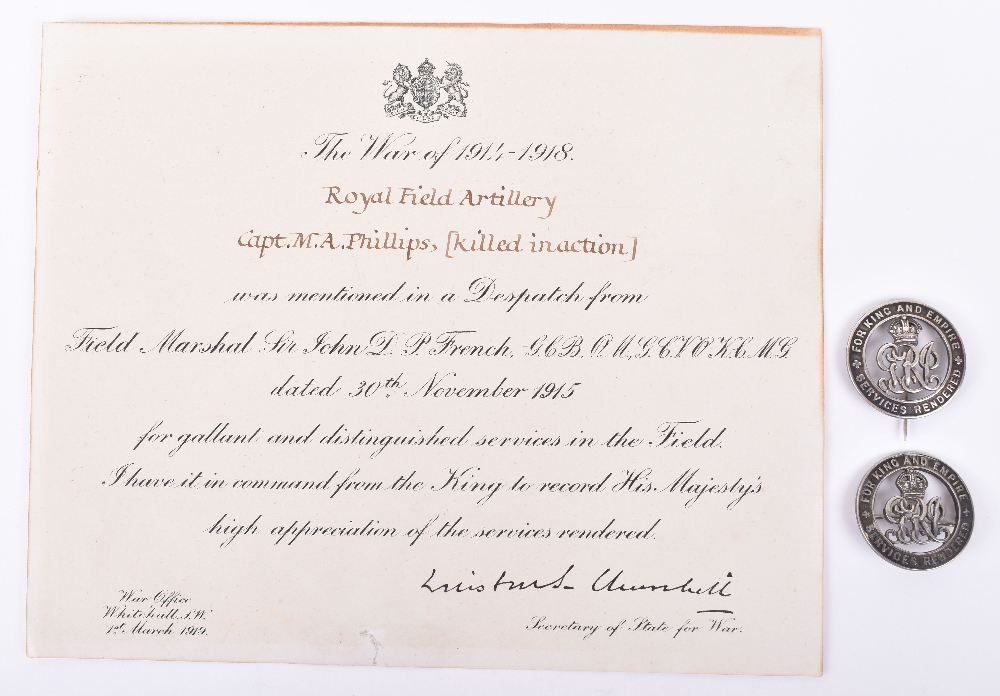 The War of 1914-1918.
Royal Field Artillery
Capt. M.A. Phillips, [killed in action]
was mentioned in a Despatch from
Field Marshal Sir John D. P. French, G.C.B, O.M, G.C.V.O, K.C.M.G
dated 30th November 1915
for gallant and distinguished services in the Field.
I have it in command from the King to record His Majesty's
high appreciation of the services rendered.
Winston S. Churchill
Secretary of State for War.
War Office
Whitehall, S.W.
1st March 1919.
FOR KING AND EMPIRE
SERVICES RENDERED
FOR KING AND EMPIRE
SERVICES RENDERED